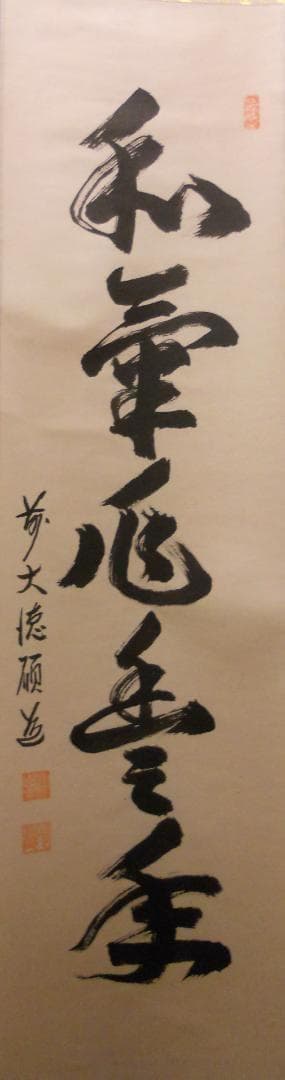 和氣兆豊年
前大徳碩道